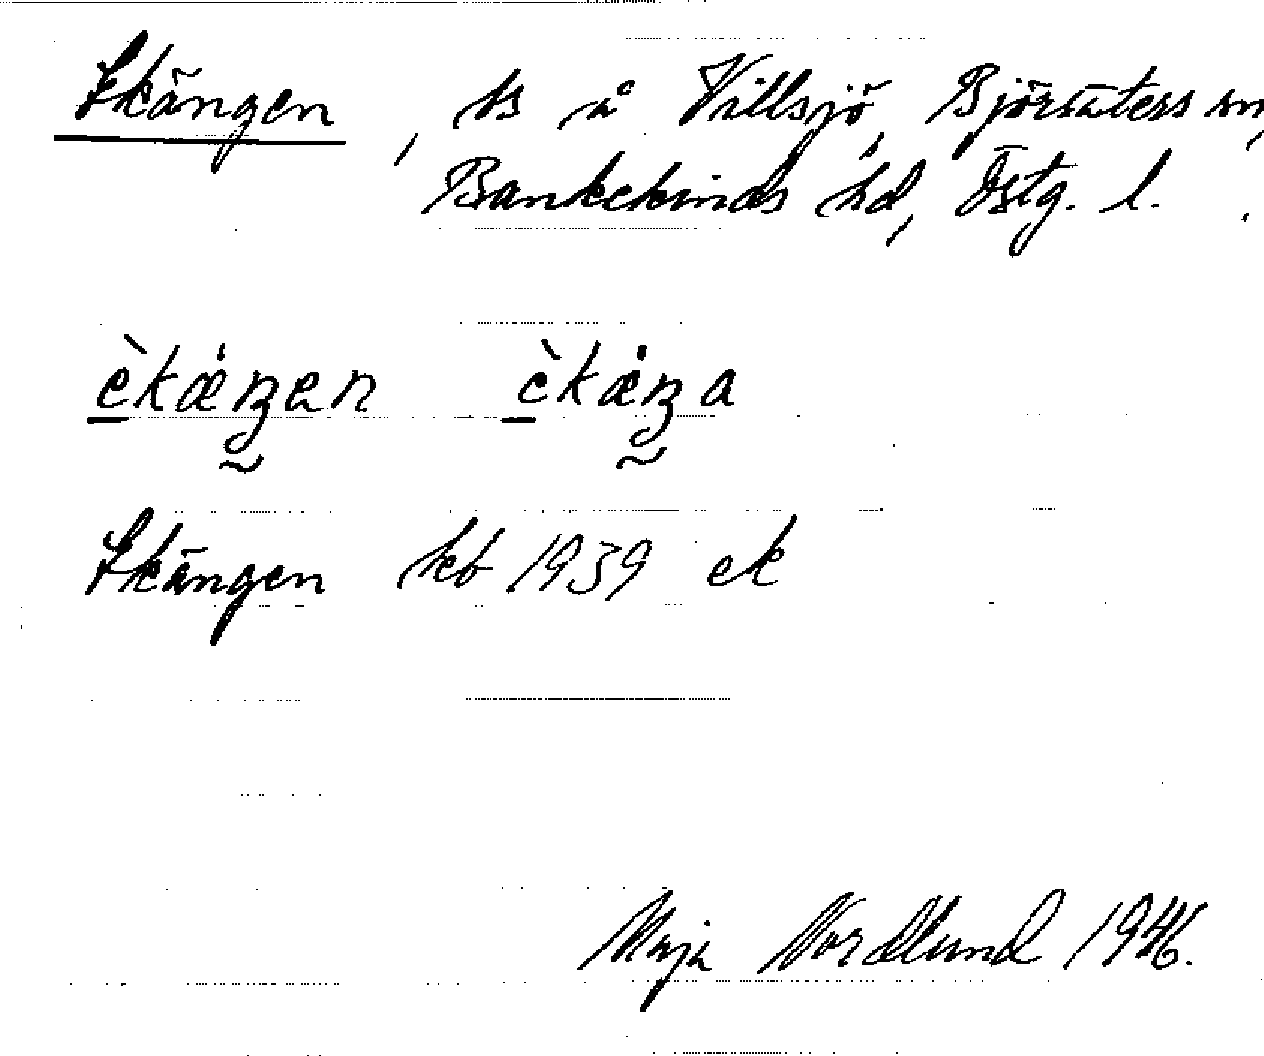 Skängen, ts å Villsjö, Björsäters sn,
Bankekinds hd, Östg. l.
Skängen kb 1939 ek
Maja Nordlund 1946.